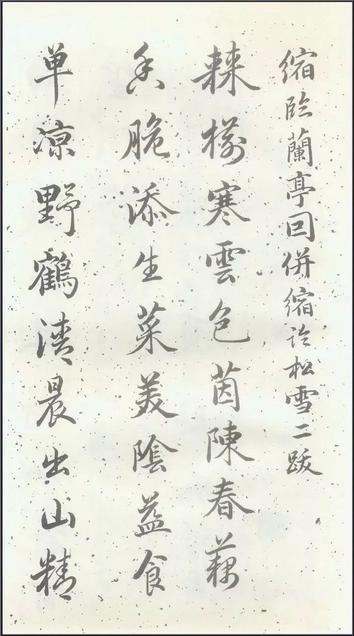 缩臨蘭亭回併缩松雪二跋
棘樹寒雲色茵陳春藕
香脆添生菜美陰益食
单凉野鶴清晨出山精